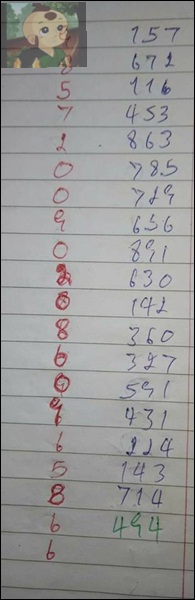 157
8 672
5 116
7 453
2 863
0 785
0 729
9 656
0 891
630
0 142
8 360
6 327
0 591
9 431
6 224
5 143
8 714
6 494
6